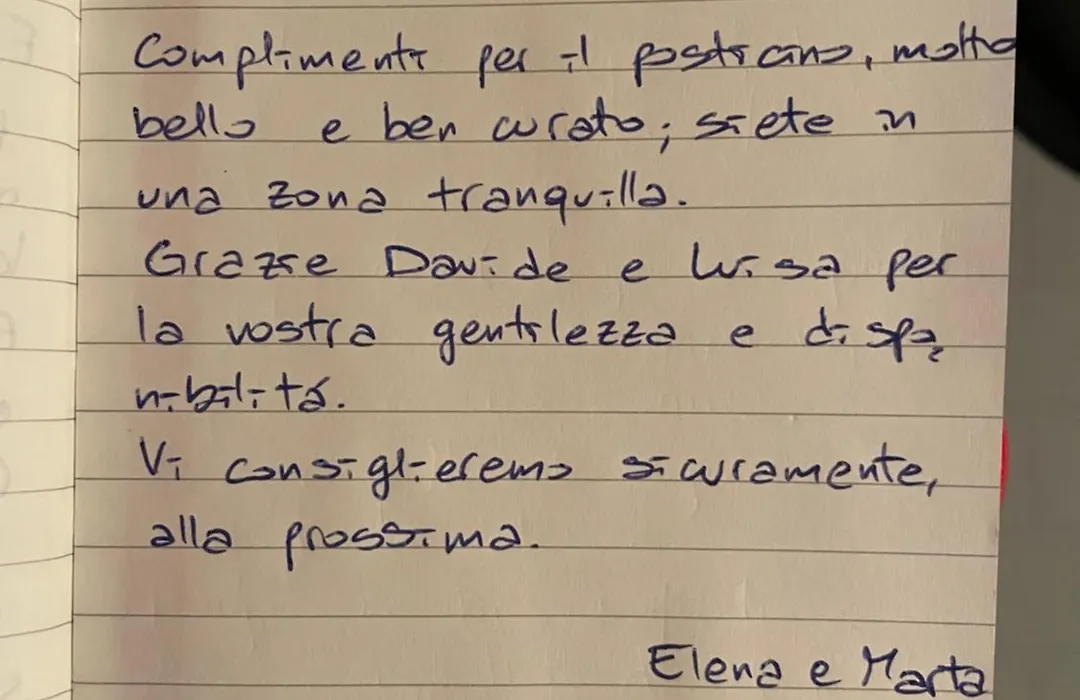 Complimenti per il posticino, molto
bello e ben curato; siete in
una zona tranquilla.
Grazie Davide e Luisa per
la vostra gentilezza e dispo
nibilità.
Vi consiglieremo sicuramente,
alla prossima.
Elena e Marta